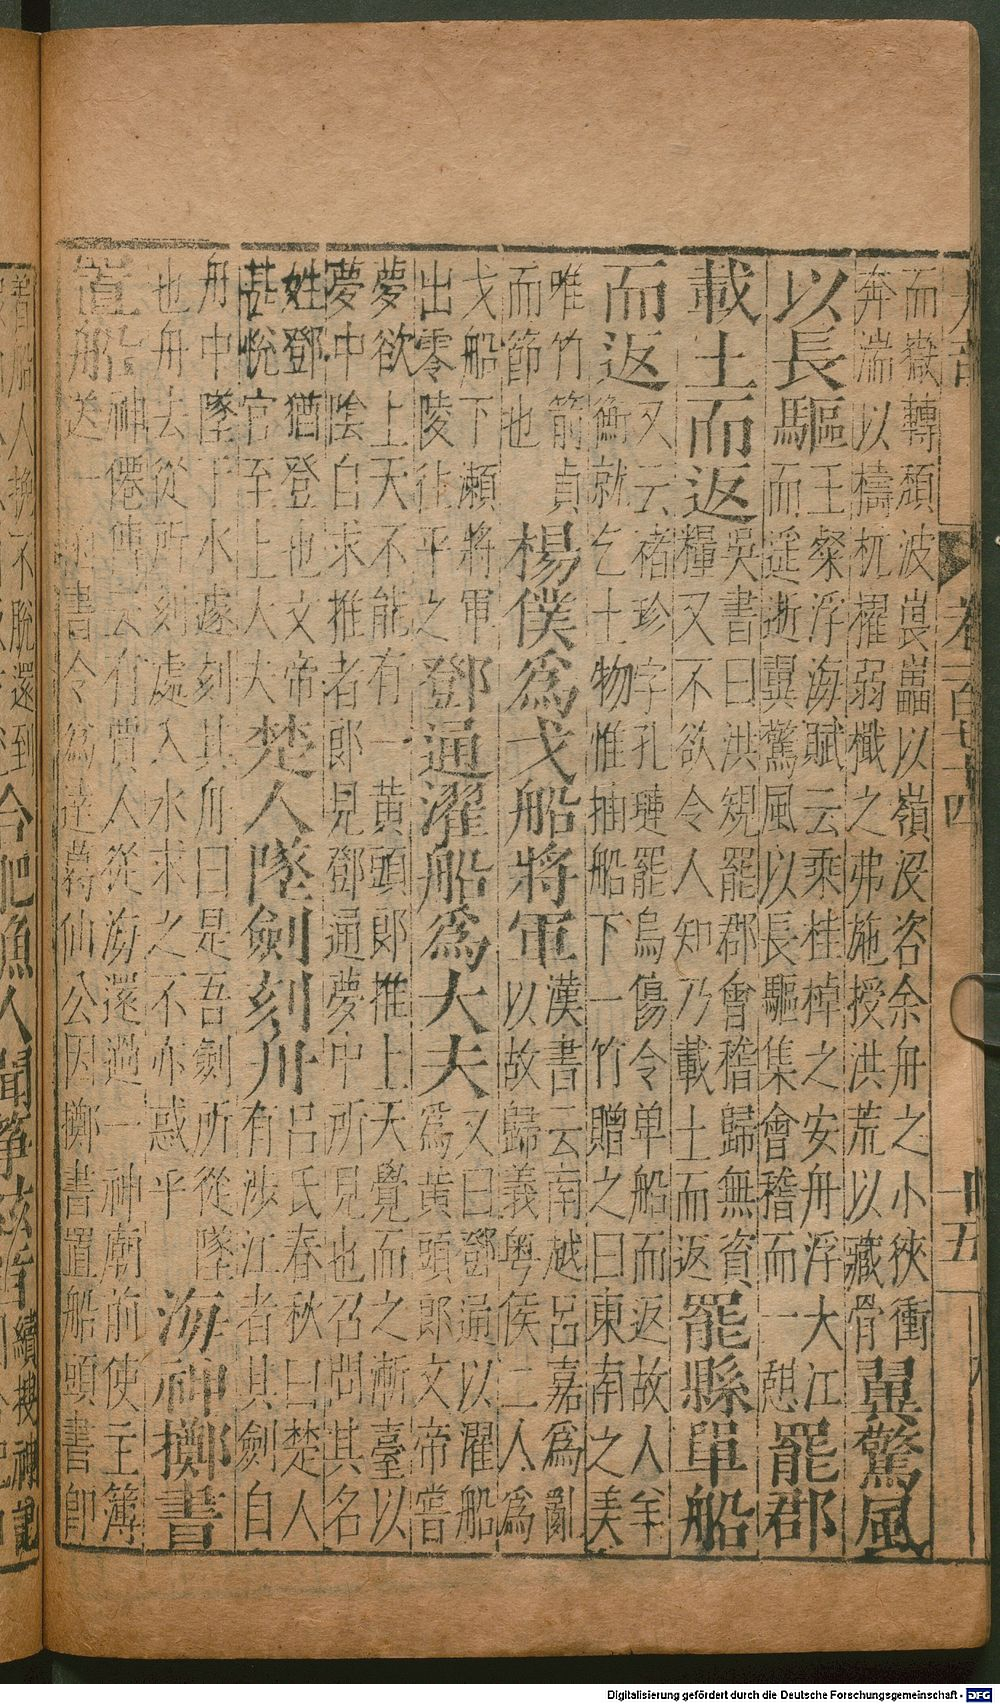 卷二百七十四
十五
而嶽轉頹波以嶺沒咨余舟之小狹衝
奔湍以檮杌櫂弱檝之弗施授洪荒以藏骨
翼驚風
以長驅
王粲浮海賦云乘桂棹之安舟浮大江
而逕逝翼驚風以長驅集會稽而一憇
罷郡
載土而返
吳書曰洪規罷郡會稽歸無資
糧又不欲令人知乃載土而返
罷縣單船
而返
又云褚珍字孔璉罷烏傷令单船而返故人羊
衡就乞土物惟抽船下一竹贈之曰東南之美
唯竹箭貞
而節也
楊僕爲戈船將軍
漢書云南越呂嘉爲亂
以故歸義粤侯二人爲
戈船下瀬將軍
出零陵往平之
鄧通濯船爲大夫
又曰鄧通以濯船
爲黄頭郎文帝嘗
夢欲上天不能有一黄頭郎推上天覺而之漸臺以
夢中陰自求推者郎見鄧通夢中所見也召問其名
姓鄧猶登也文帝
甚悅官至上大大
楚人墜劍刻舟
呂氏春秋曰楚人
有涉江者其劍自
舟中墜于水遽刻其舟曰是吾劍所從墜
也舟去從所刻處入水求之不亦惑乎
海神擲書
置船
神僊傳云有賈人從海還過一神廟前使主簿
送一函書令爲達葛仙公因擲書置船頭書卽
着船人挽不脫還到
合肥漁人聞箏
續搜神記